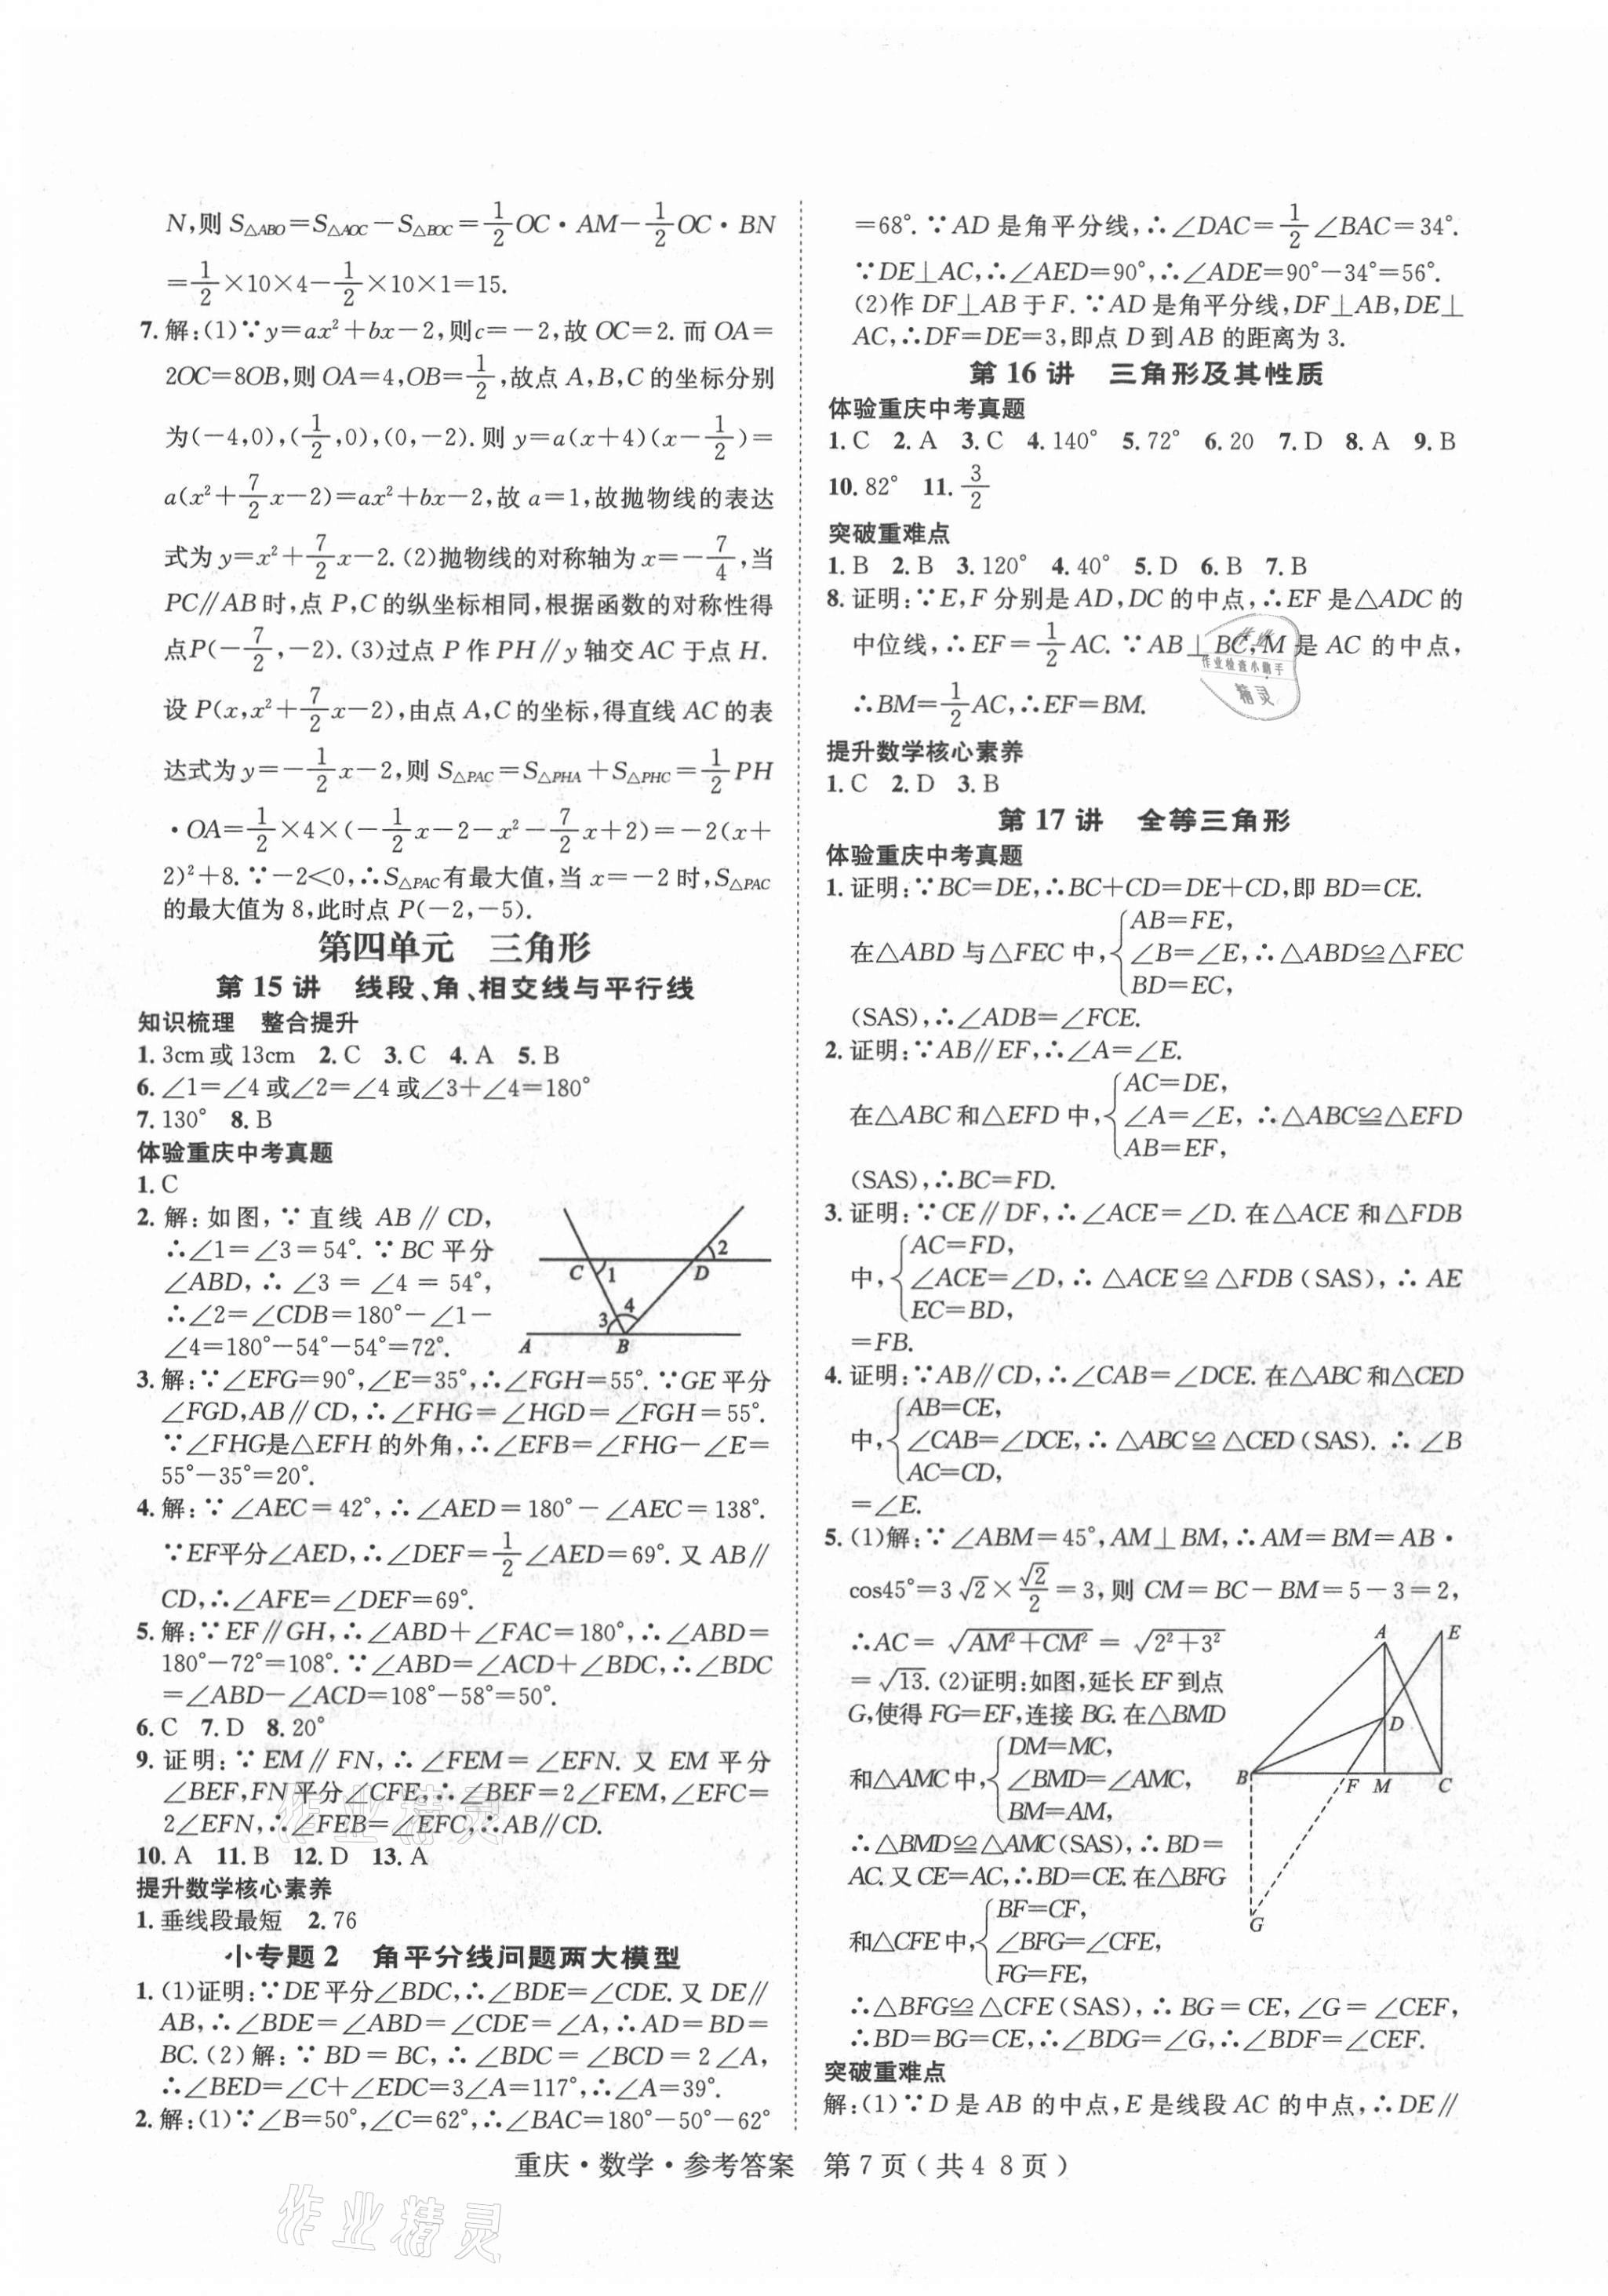 N,则 S△ABO=S△AOC-S△BOC=1/2OC·AM-1/2OC·BN
=1/2×10×4-1/2×10×1=15.
7.解:(1)∵y=ax²+bx-2,则c=-2,故 OC=2.而 OA=
2OC=8OB,则 OA=4,OB=1/2,故点 A,B,C 的坐标分别
为(-4,0),(1/2,0),(0,-2).则 y=a(x+4)(x-1/2)=
a(x²+7/2x-2)=ax²+bx-2,故 a=1,故抛物线的表达
式为 y=x²+7/2x-2.(2)抛物线的对称轴为 x=-7/4,当
PC∥AB时,点 P,C的纵坐标相同,根据函数的对称性得
点P(-7/2,-2).(3)过点 P 作 PH∥y 轴交 AC 于点 H.
设 P(x,x²+7/2x-2),由点 A,C的坐标,得直线 AC 的表
达式为 y=-1/2x-2,则 S△PAC=S△PHA+S△PHC=1/2PH
·OA=1/2×4×(-1/2x-2-x²-7/2x+2)=-2(x+
2)²+8.∵-2<0,∴S△PAC有最大值,当 x=-2 时,S△PAC
的最大值为 8,此时点 P(-2,-5).
第四单元 三角形
第 15 讲 线段、角、相交线与平行线
知识梳理 整合提升
1.3cm或 13cm 2.C 3.C 4.A 5.B
6.∠1=∠4 或∠2=∠4 或∠3+∠4=180°
7.130° 8.B
体验重庆中考真题
1.C
2.解:如图,∵直线 AB∥CD,
∴∠1=∠3=54°.∵BC 平分
∠ABD,∴∠3=∠4=54°,
∴∠2=∠CDB=180°-∠1-
∠4=180°-54°-54°=72°.
C 1 D 2
3 4
A B
3.解:∵∠EFG=90°,∠E=35°,∴∠FGH=55°.∵GE 平分
∠FGD,AB∥CD,∴∠FHG=∠HGD=∠FGH=55°.
∵∠FHG是△EFH 的外角,∴∠EFB=∠FHG-∠E=
55°-35°=20°.
4.解:∵∠AEC=42°,∴∠AED=180°-∠AEC=138°.
∵EF平分∠AED,∴∠DEF=1/2∠AED=69°.又 AB∥
CD,∴∠AFE=∠DEF=69°.
5.解:∵EF∥GH,∴∠ABD+∠FAC=180°,∴∠ABD=
180°-72°=108°.∵∠ABD=∠ACD+∠BDC,∴∠BDC
=∠ABD-∠ACD=108°-58°=50°.
6.C 7.D 8.20°
9.证明:∵EM∥FN,∴∠FEM=∠EFN.又 EM 平分
∠BEF,FN平分∠CFE,∴∠BEF=2∠FEM,∠EFC=
2∠EFN,∴∠FEB=∠EFC,∴AB∥CD.
10.A 11.B 12.D 13.A
提升数学核心素养
1.垂线段最短 2.76
小专题 2 角平分线问题两大模型
1.(1)证明:∵DE平分∠BDC,∴∠BDE=∠CDE.又 DE∥
AB,∴∠BDE=∠ABD=∠CDE=∠A,∴AD=BD=
BC.(2)解:∵BD=BC,∴∠BDC=∠BCD=2∠A,
∴∠BED=∠C+∠EDC=3∠A=117°,∴∠A=39°.
2.解:(1)∵∠B=50°,∠C=62°,∴∠BAC=180°-50°-62°
=68°.∵AD 是角平分线,∴∠DAC=1/2∠BAC=34°.
∵DE⊥AC,∴∠AED=90°,∴∠ADE=90°-34°=56°.
(2)作 DF⊥AB 于 F.∵AD 是角平分线,DF⊥AB,DE⊥
AC,∴DF=DE=3,即点 D 到 AB 的距离为 3.
第 16 讲 三角形及其性质
体验重庆中考真题
1.C 2.A 3.C 4.140° 5.72° 6.20 7.D 8.A 9.B
10.82° 11.3/2
突破重难点
1.B 2.B 3.120° 4.40° 5.D 6.B 7.B
8.证明:∵E,F 分别是 AD,DC 的中点,∴EF 是△ADC 的
中位线,∴EF=1/2AC.∵AB⊥BC,M 是 AC 的中点,
∴BM=1/2AC,∴EF=BM.
作业检查小助手
精灵
提升数学核心素养
1.C 2.D 3.B
第 17 讲 全等三角形
体验重庆中考真题
1.证明:∵BC=DE,∴BC+CD=DE+CD,即 BD=CE.
AB=FE,
在△ABD 与△FEC 中,{∠B=∠E,∴△ABD≌△FEC
BD=EC,
(SAS),∴∠ADB=∠FCE.
2.证明:∵AB∥EF,∴∠A=∠E.
AC=DE,
在△ABC 和△EFD 中,{∠A=∠E,∴△ABC≌△EFD
AB=EF,
(SAS),∴BC=FD.
3.证明:∵CE∥DF,∴∠ACE=∠D.在△ACE 和△FDB
AC=FD,
中,{∠ACE=∠D,∴△ACE≌△FDB(SAS),∴AE
EC=BD,
=FB.
4.证明:∵AB∥CD,∴∠CAB=∠DCE.在△ABC 和△CED
AB=CE,
中,{∠CAB=∠DCE,∴△ABC≌△CED(SAS).∴∠B
AC=CD,
=∠E.
5.(1)解:∵∠ABM=45°,AM⊥BM,∴AM=BM=AB·
cos45°=3√2×√2/2=3,则 CM=BC-BM=5-3=2,
∴AC=√(AM²+CM²)=√(2²+3²)
=√13.(2)证明:如图,延长 EF 到点
G,使得 FG=EF,连接 BG.在△BMD
DM=MC,
和△AMC中,{∠BMD=∠AMC,
BM=AM,
∴△BMD≌△AMC(SAS),∴BD=
AC.又 CE=AC,∴BD=CE.在△BFG
BF=CF,
和△CFE中,{∠BFG=∠CFE,
FG=FE,
A E
D
B F M C
G
∴△BFG≌△CFE(SAS),∴BG=CE,∠G=∠CEF,
∴BD=BG=CE,∴∠BDG=∠G,∴∠BDF=∠CEF.
突破重难点
解:(1)∵D 是 AB 的中点,E 是线段 AC 的中点,∴DE∥
重庆·数学·参考答案 第 7 页(共 4 8 页)
作业精灵
作业精灵